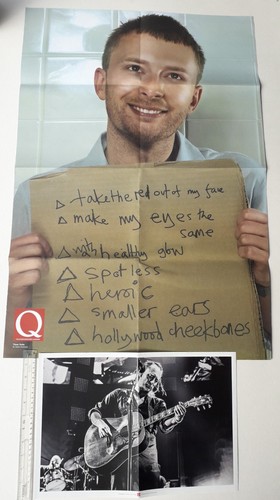 △ take the red out of my face
△ make my eyes the
same
△ with healthy glow
△ spotless
△ heroic
△ smaller ears
△ hollywood cheekbones
Q